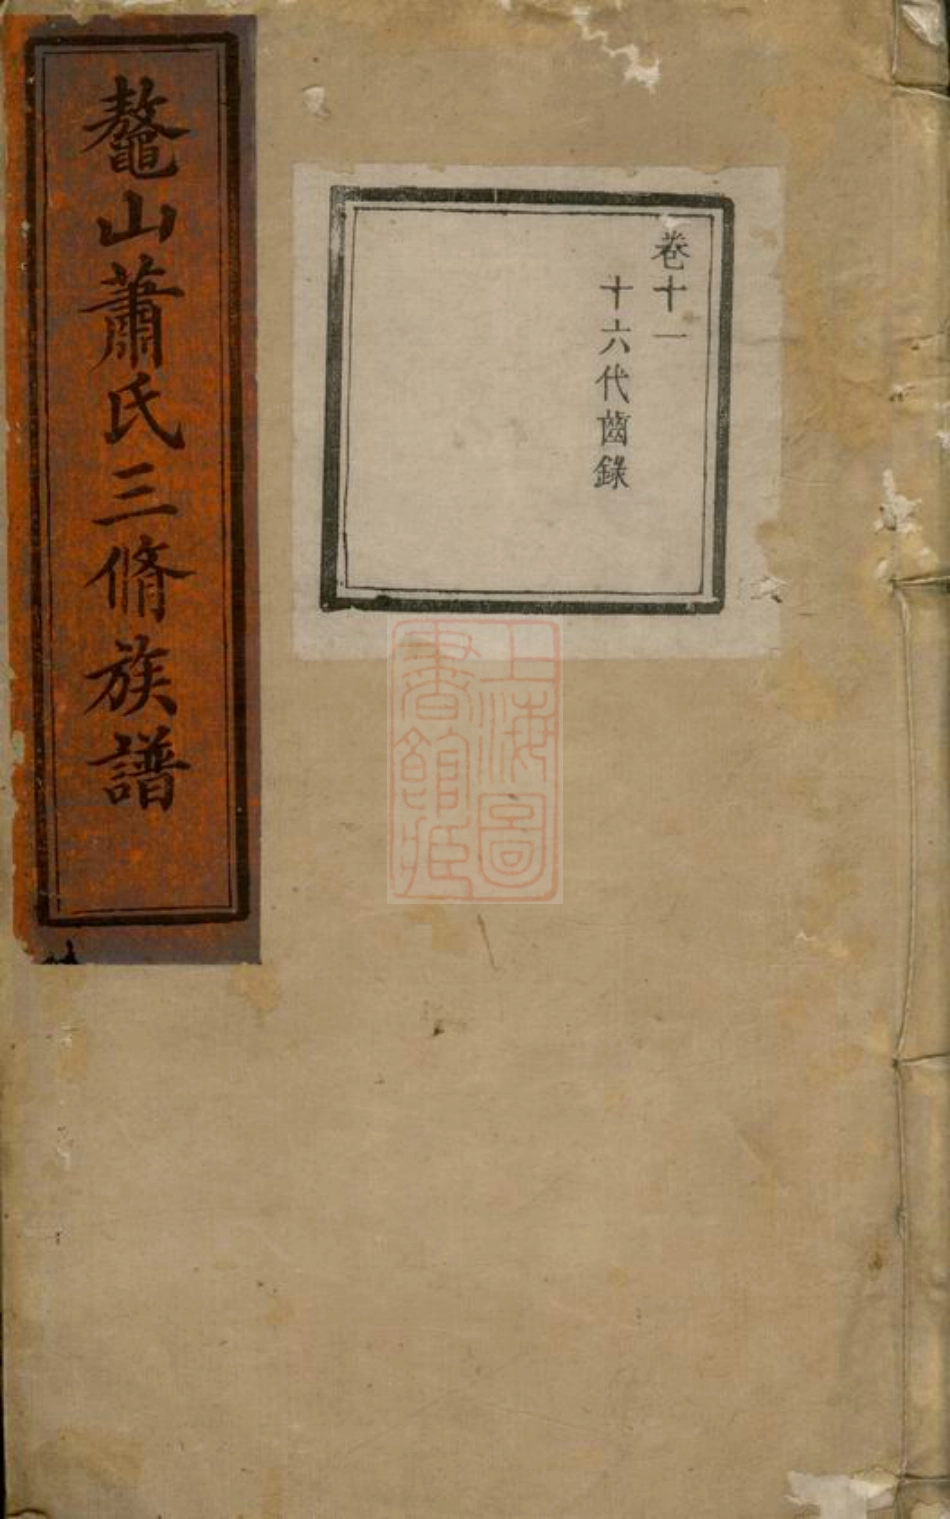 鼇山蕭氏三脩族譜
卷十一
十六代齒錄
上海圖
書館藏